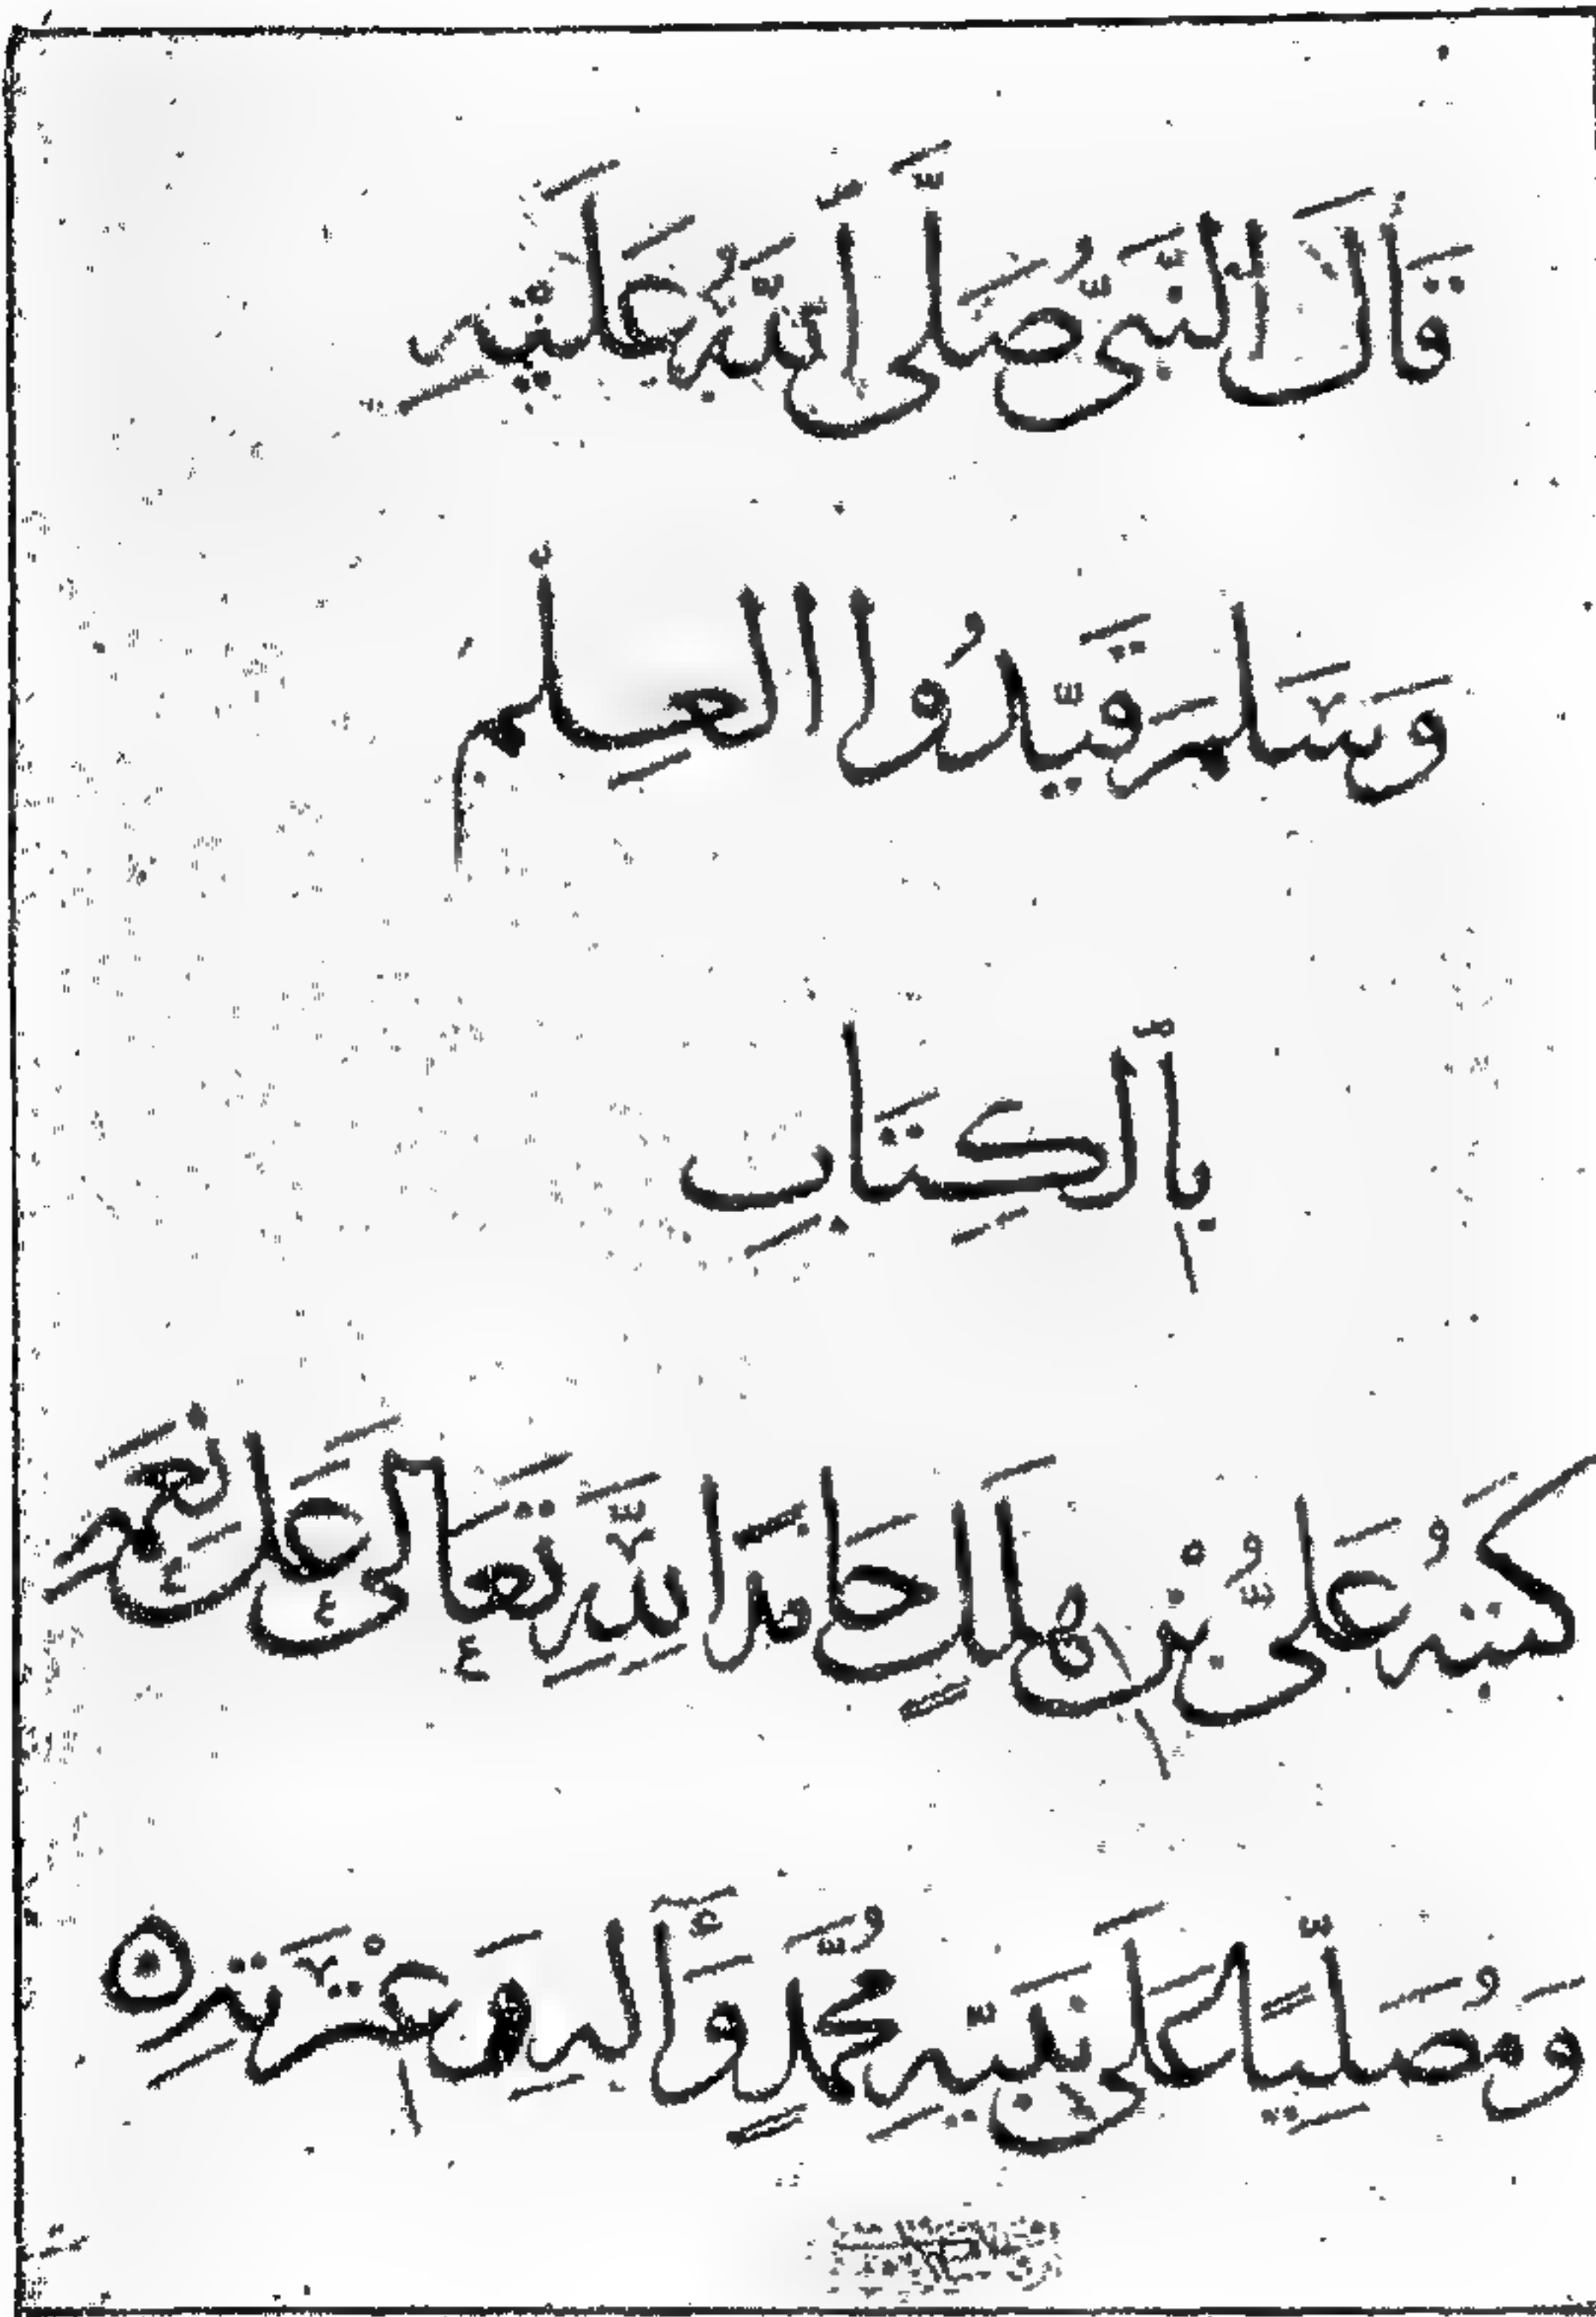 قَالَ النَّبِىُّ صَلَّى ٱللَّهُ عَلَيْهِ
وَسَلَمَ قَيِّدُوا العِلمَ
بِٱلكِتَابِ
كَتبَهُ عَلىُّ بْنِ هِلَالٍ حَامَدًا لِلَّهِ تَعَالَى عَلَى نِعَمِهِ
وَمُصَلِّيًا عَلَى نَبَيِّهِ مُحَّمَدٍ وَّأٓلِهِ وَعِتْرَتِهِ